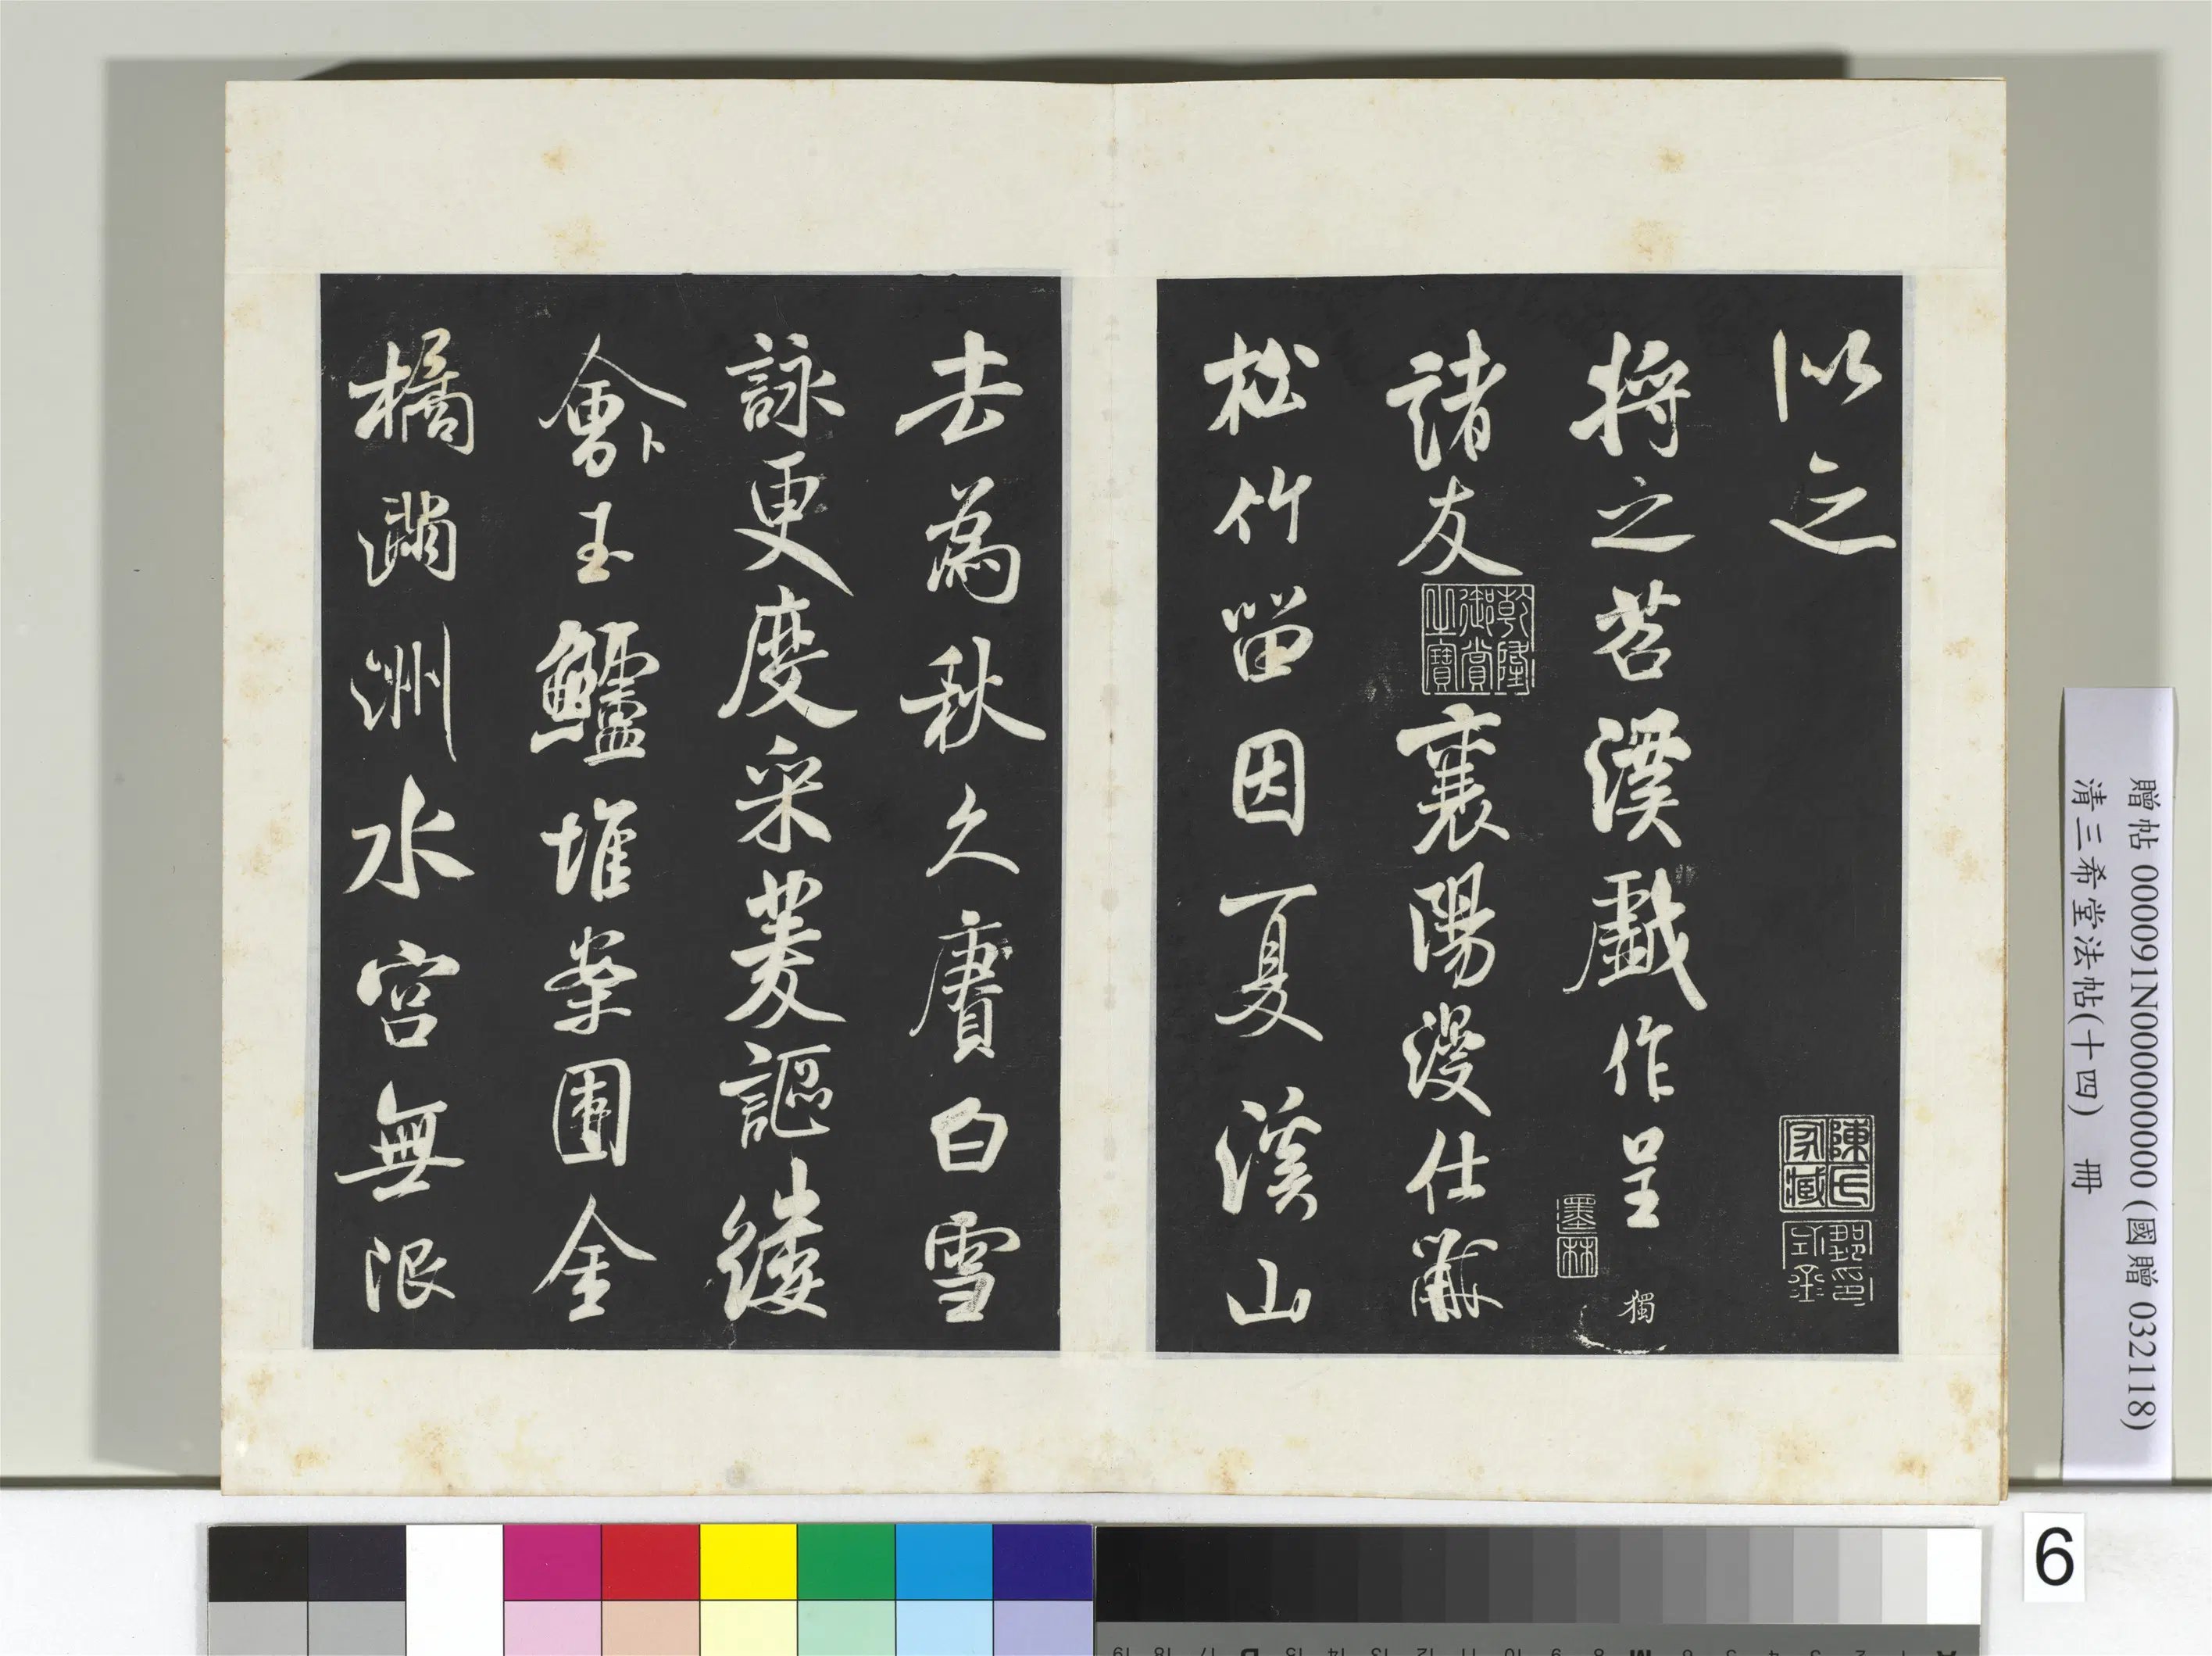 以之
陳氏家藏
將之苕溪戲作呈
獨
墨林
諸友 襄陽漫仕黻
乾隆御賞之寶
松竹留因夏溪山
去為秋久賡白雪
詠更度采菱謳縷
會卜玉鱸堆案團金
橘滿洲水宮無限
贈帖 000091N000000000 (國贈 032118)
清三希堂法帖(十四) 冊
6